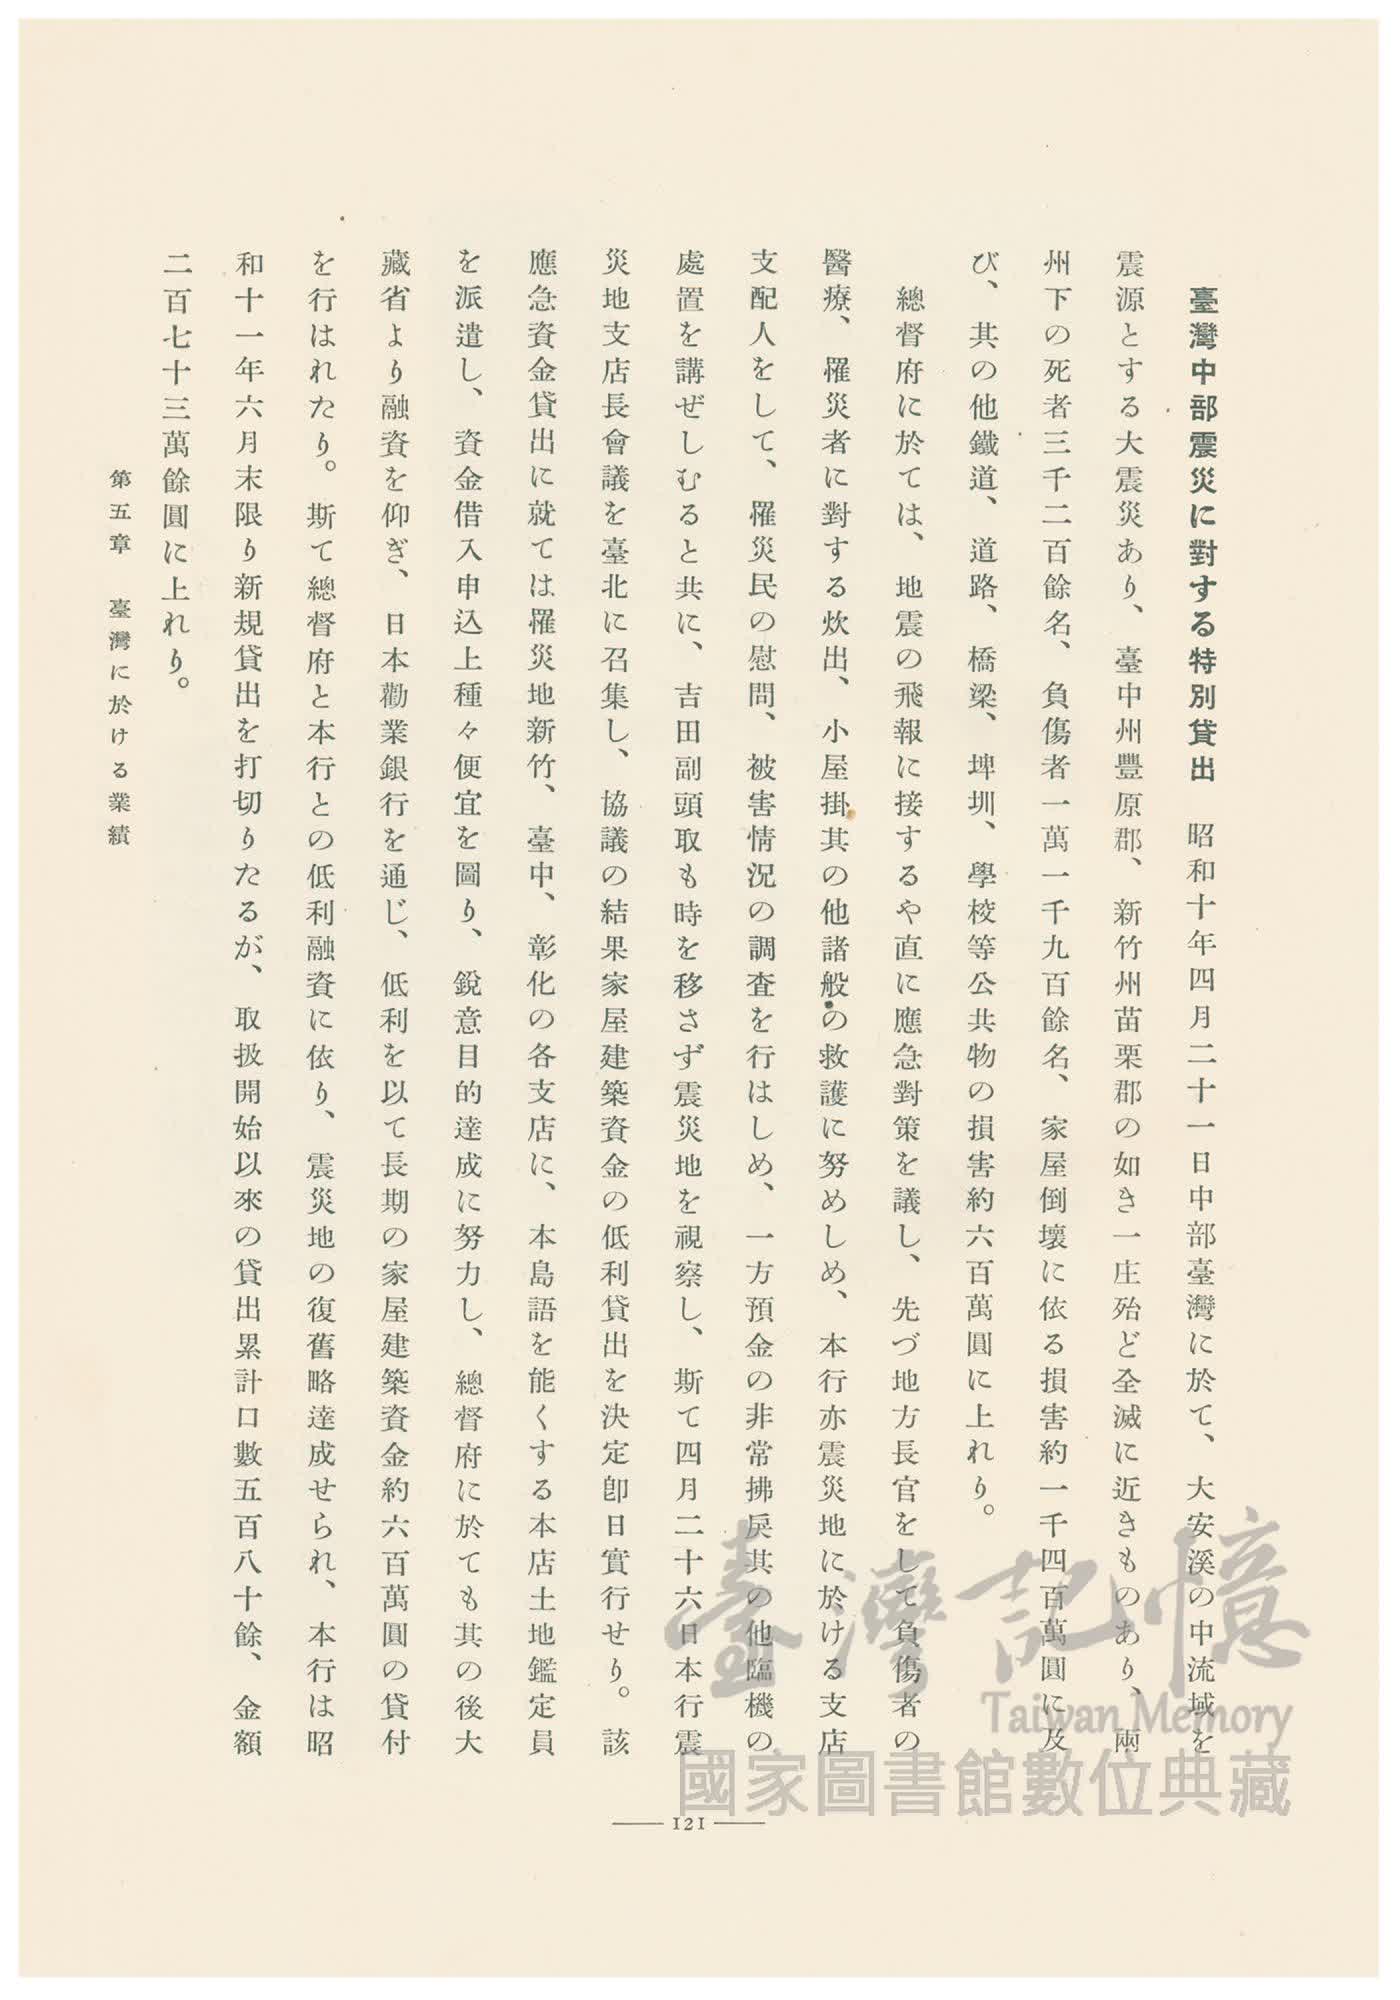 臺灣中部震災に對する特別貸出　昭和十年四月二十一日中部臺灣に於て、大安溪の中流域を
震源とする大震災あり、臺中州豐原郡、新竹州苗栗郡の如き一庄殆ど全滅に近きものあり、兩
州下の死者三千二百餘名、負傷者一萬一千九百餘名、家屋倒壞に依る損害約一千四百萬圓に及
び、其の他鐵道、道路、橋梁、埤圳、學校等公共物の損害約六百萬圓に上れり。
總督府に於ては、地震の飛報に接するや直に應急對策を議し、先づ地方長官をして負傷者の
醫療、罹災者に對する炊出、小屋掛其の他諸般の救護に努めしめ、本行亦震災地に於ける支店
支配人をして、罹災民の慰問、被害情況の調査を行はしめ、一方預金の非常拂戾其の他臨機の
處置を講ぜしむると共に、吉田副頭取も時を移さず震災地を視察し、斯て四月二十六日本行震
災地支店長會議を臺北に召集し、協議の結果家屋建築資金の低利貸出を決定卽日實行せり。該
應急資金貸出に就ては罹災地新竹、臺中、彰化の各支店に、本島語を能くする本店土地鑑定員
を派遣し、資金借入申込上種々便宜を圖り、銳意目的達成に努力し、總督府に於ても其の後大
藏省より融資を仰ぎ、日本勸業銀行を通じ、低利を以て長期の家屋建築資金約六百萬圓の貸付
を行はれたり。斯て總督府と本行との低利融資に依り、震災地の復舊略達成せられ、本行は昭
和十一年六月末限り新規貸出を打切りたるが、取扱開始以來の貸出累計口數五百八十餘、金額
二百七十三萬餘圓に上れり。
第五章　臺灣に於ける業績
121
臺灣記憶
Taiwan Memory
國家圖書館數位典藏